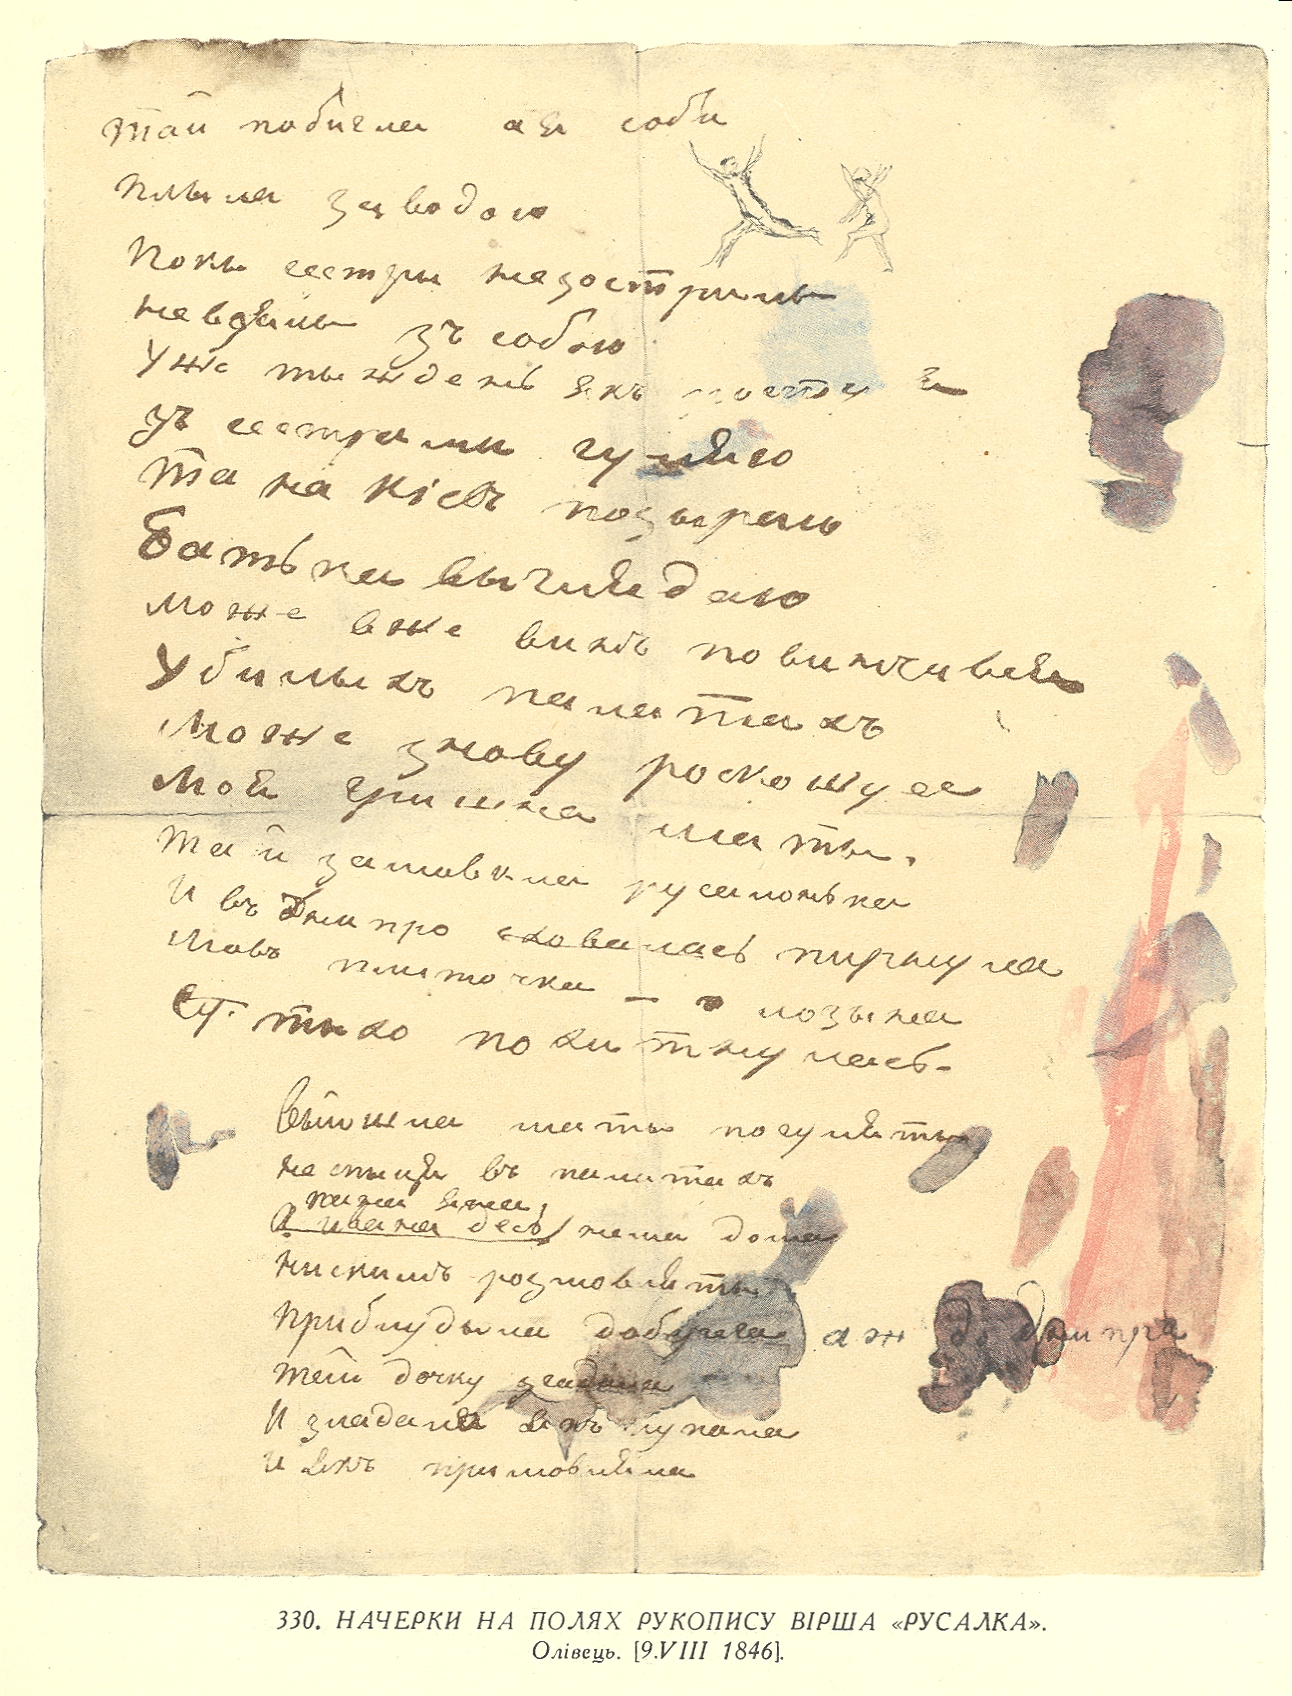 Тай побигла а я соби
плыла за водою
Покы сестры незострилы
невзялы зъ собою
Уже тыждень якъ росту я
зъ сестрамы гуляю
Та на Кіевъ позыраю
Батька выглядаю
може вже винъ повинчився
У билыхъ палатахъ
Може знову роскошуе
Моя гришна маты.
Тай замовкла русалонька
И въ Днипро сховалась пирнула
Мовъ плиточка — лозына
тыхо похитнулась.
Выйшла маты погуляты
неспыця въ палатахъ
пана Яна,
А Ивана десь нема дома
нискимъ розмовляты
Приблудыла до бугая аж до днипра
Тай дочку згадала
И згадала якъ купала
И якъ примовляла
330. НАЧЕРКИ НА ПОЛЯХ РУКОПИСУ ВІРША «РУСАЛКА».
Олівець. [9.VIII 1846].